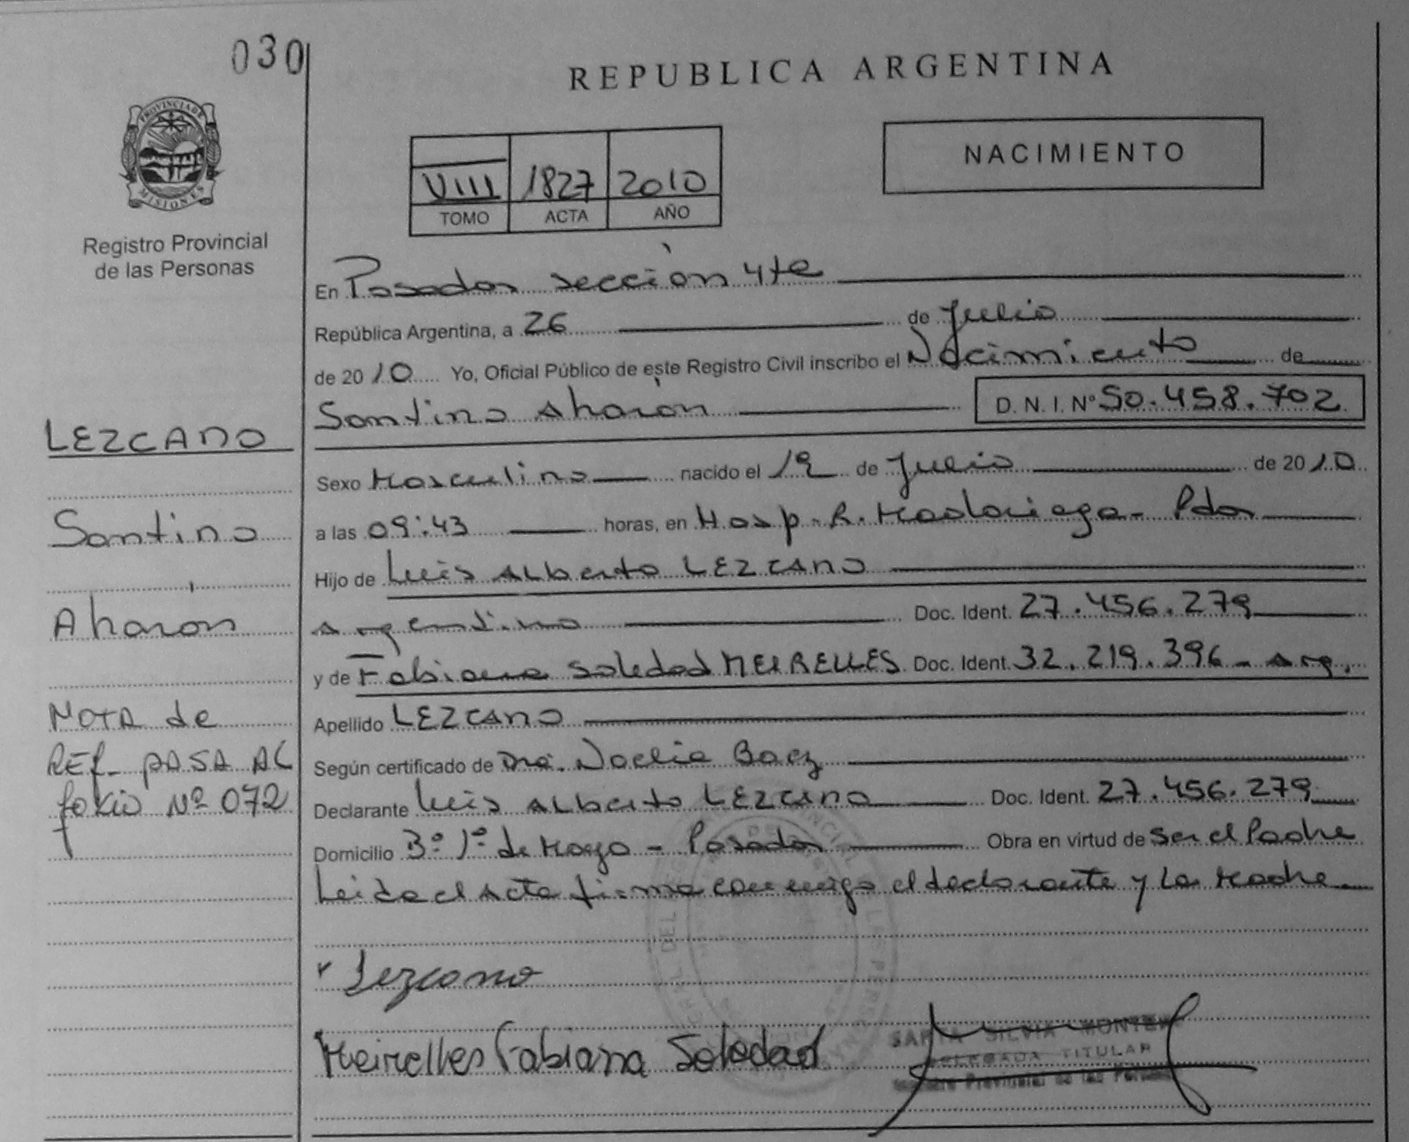 030
REPUBLICA ARGENTINA
PROVINCIA DE MISIONES
Registro Provincial
de las Personas
VIII 1827 2010
TOMO ACTA AÑO
NACIMIENTO
En Posadas sección 4ta
República Argentina, a 26 de Julio
de 2010 Yo, Oficial Público de este Registro Civil inscribo el Nacimiento de
Santino Aharón D. N. I. Nº 50.458.702
LEZCANO
Sexo Masculino nacido el 12 de Julio de 2010
Santino
a las 09:43 horas, en Hosp. R. Madariaga - Pdas
Hijo de Luis Alberto LEZCANO
Aharón
Argentino Doc. Ident. 27.456.279
y de Fabiana Soledad MEIRELLES Doc. Ident. 32.219.396 - Arg.
NOTA de
REF. PASA AL
folio Nº 072
Apellido LEZCANO
Según certificado de Dra. Noelia Baez
Declarante Luis Alberto LEZCANO Doc. Ident. 27.456.279
Domicilio 3º 1º de Mayo - Posadas Obra en virtud de Ser el Padre
Leida el Acta firma conmigo el declarante y La Madre
Lezcano
Meirelles Fabiana Soledad
SILVIA
DELEGADA TITULAR
Registro Provincial de las Personas